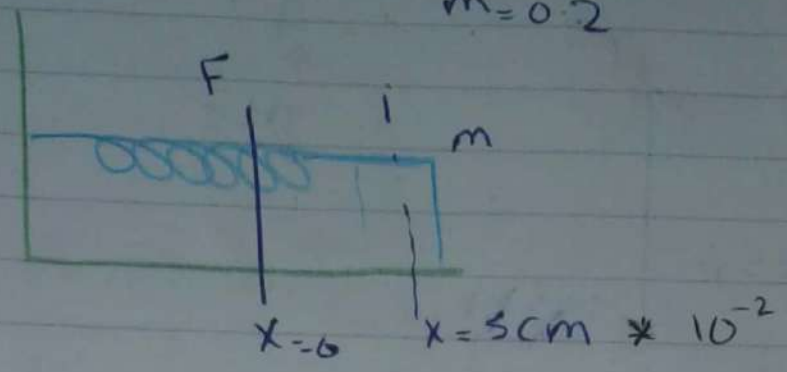 m = 0.2
F
i
m
x = 0
x = 5cm * 10⁻²